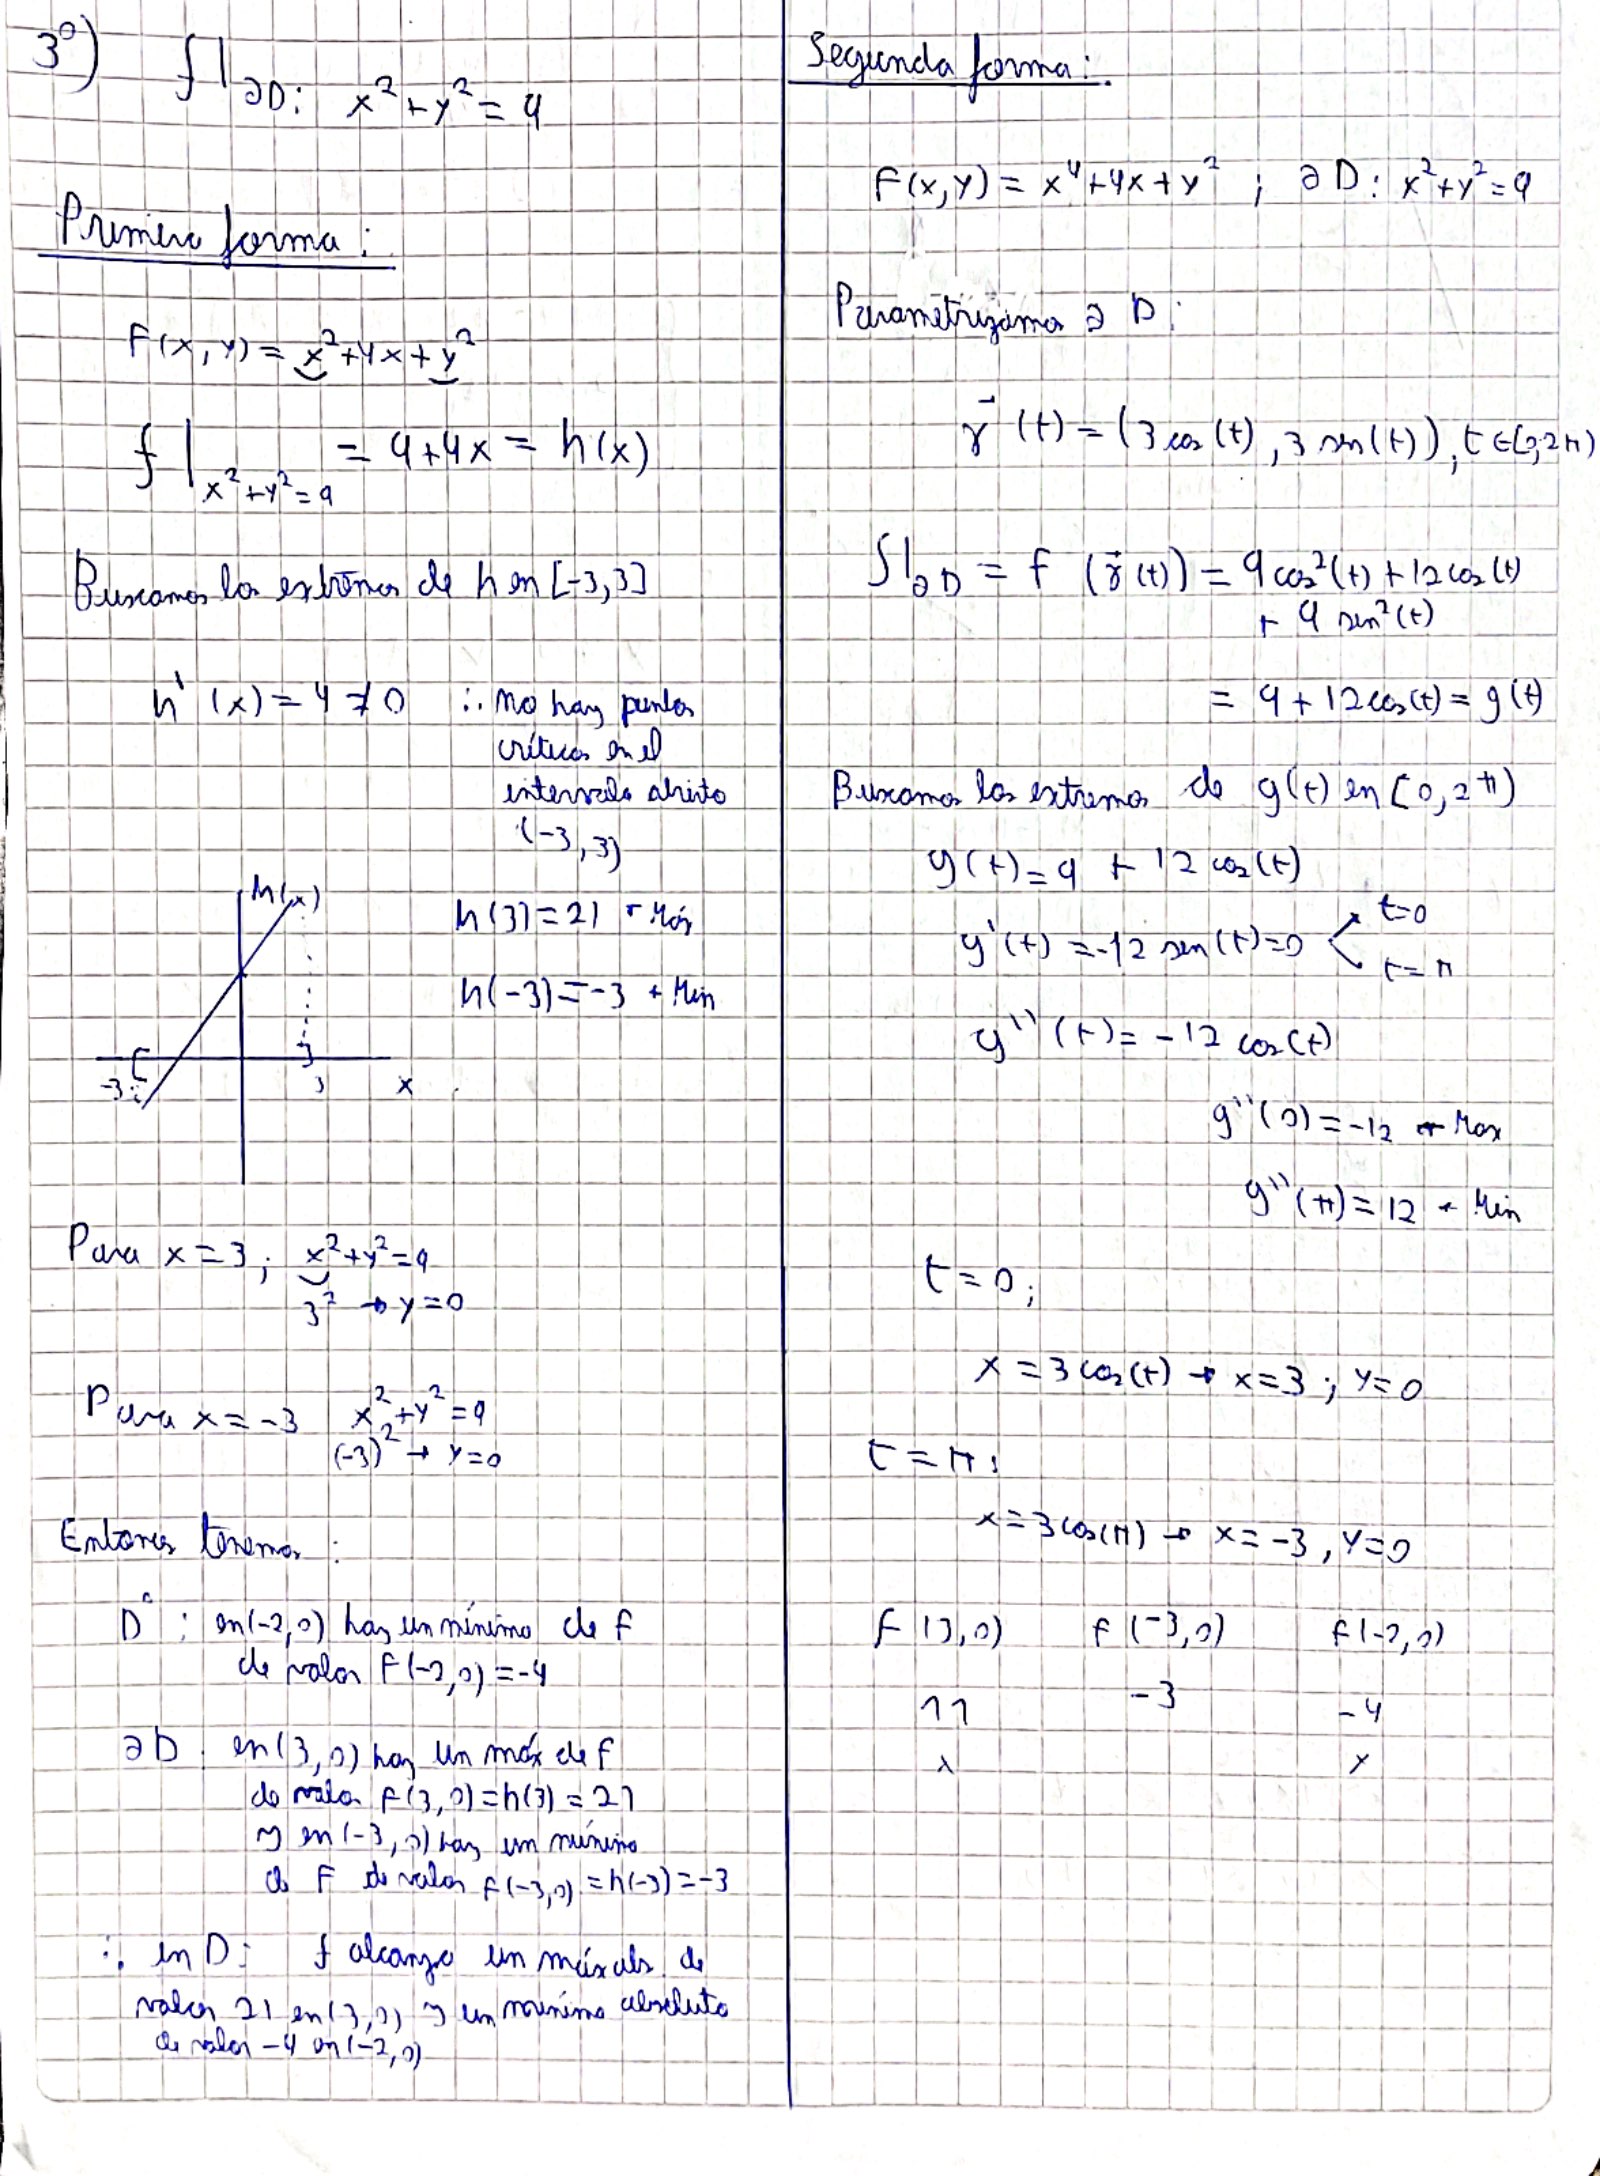 3°) f|∂D: x² + y² = 9
Primera forma:
F(x, y) = x² + 4x + y²
f|x² + y² = 9 = 9 + 4x = h(x)
Buscamos los extremos de h en [-3, 3]
h' (x) = 4 ≠ 0 ∴ no hay puntos
críticos en el
intervalo abierto
(-3, 3)
h(x)
h(3) = 21 → Máx
h(-3) = -3 → Min
-3 3 x
Para x = 3; x² + y² = 9
3² → y = 0
Para x = -3 x² + y² = 9
(-3)² → y = 0
Entonces tenemos:
D°: en (-2, 0) hay un mínimo de f
de valor F(-2, 0) = -4
∂D: en (3, 0) hay un máx de f
de valor F(3, 0) = h(3) = 21
y en (-3, 0) hay un mínimo
de F de valor f(-3, 0) = h(-3) = -3
∴ en D: f alcanza un máx abs. de
valor 21 en (3, 0) y un mínimo absoluto
de valor -4 en (-2, 0)
Segunda forma:
F(x, y) = x⁴ + 4x + y² ; ∂D: x² + y² = 9
Parametrizamos ∂D:
γ⃗ (t) = (3 cos (t), 3 sen(t)), t ∈ [0, 2π)
f|∂D = f (γ⃗(t)) = 9 cos²(t) + 12 cos(t)
+ 9 sen²(t)
= 9 + 12 cos(t) = g(t)
Buscamos los extremos de g(t) en [0, 2π)
g(t) = 9 + 12 cos(t)
g'(t) = -12 sen(t) = 0 t=0
t=π
g''(t) = -12 cos(t)
g''(0) = -12 → Max
g''(π) = 12 → Min
t = 0;
x = 3 cos(t) → x = 3; y = 0
t = π:
x = 3 cos(π) → x = -3, y = 0
F(3, 0) f(-3, 0) f(-2, 0)
21 -3 -4
x x